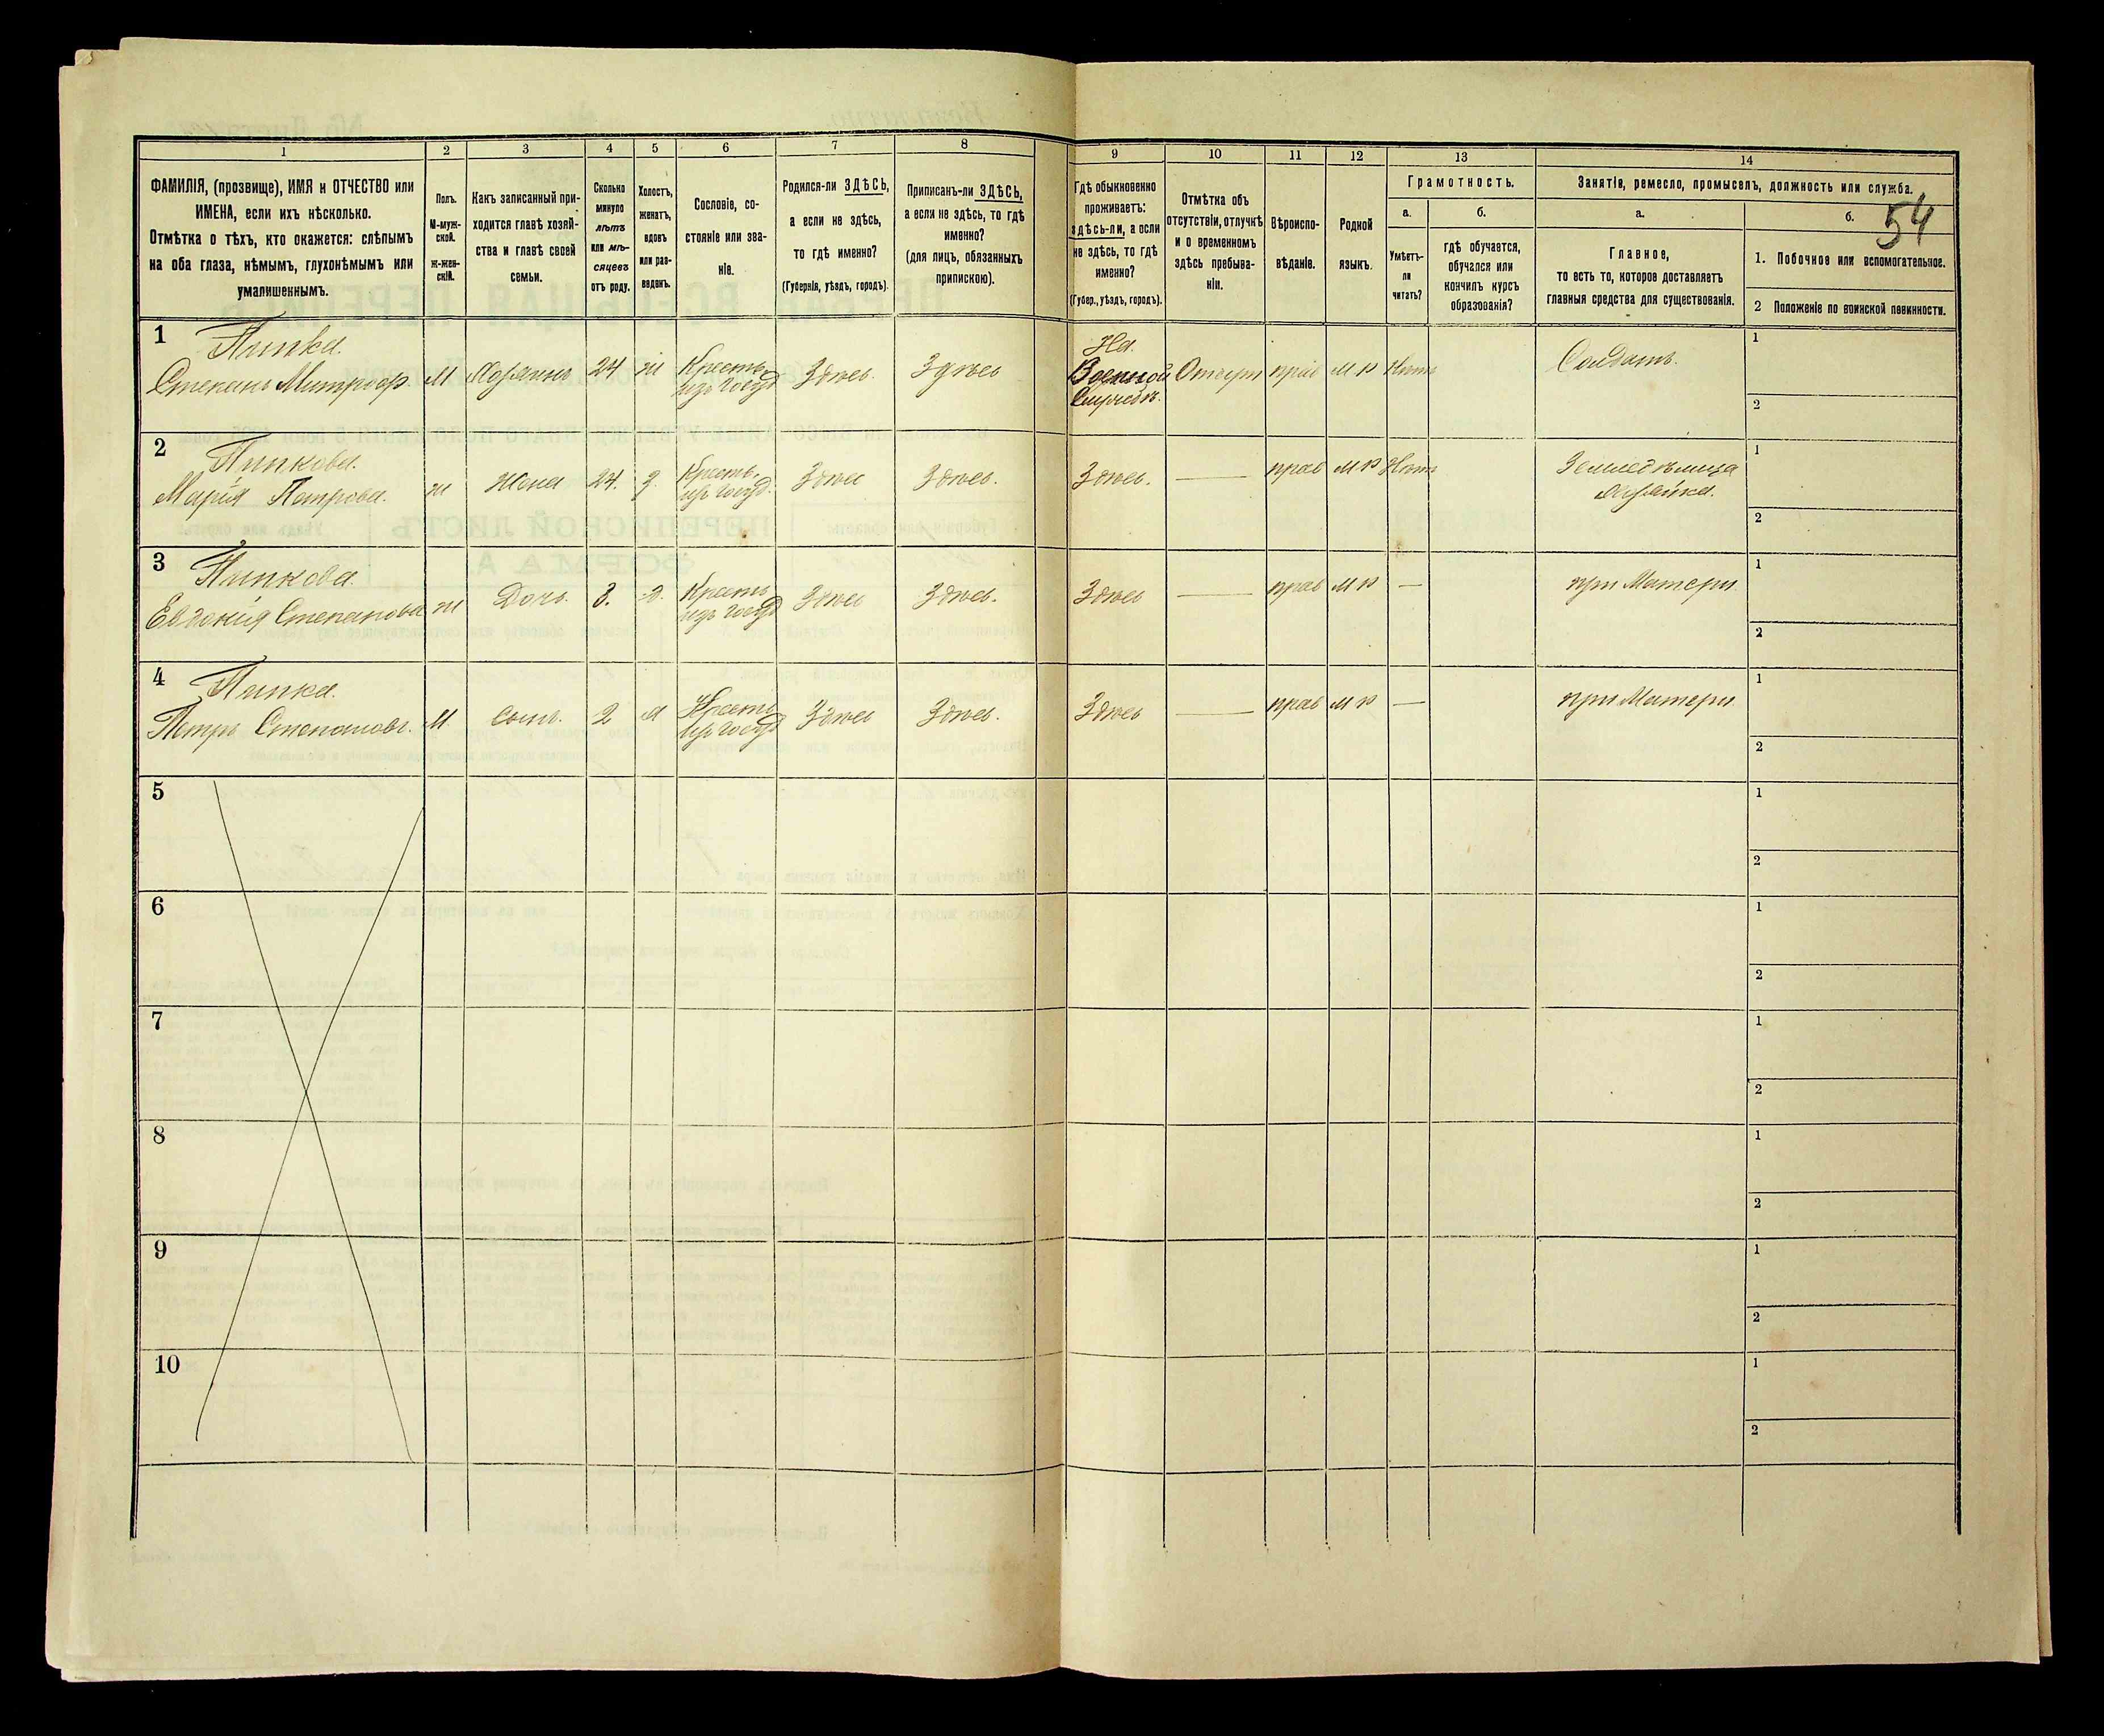 1 2 3 4 5 6 7 8 9 10 11 12 13 14
ФАМИЛІЯ, (прозвище), ИМЯ и ОТЧЕСТВО или
ИМЕНА, если ихъ нѣсколько.
Отмѣтка о тѣхъ, кто окажется: слѣпымъ
на оба глаза, нѣмымъ, глухонѣмымъ или
умалишеннымъ.
Полъ.
М-муж-
ской.
ж-жен-
скій.
Какъ записанный при-
ходится главѣ хозяй-
ства и главѣ своей
семьи.
Сколько
минуло
лѣтъ
или мѣ-
сяцевъ
отъ роду.
Холостъ,
женатъ,
вдовъ
или раз-
веденъ.
Сословіе, со-
стояніе или зва-
ніе.
Родился-ли ЗДѢСЬ,
а если не здѣсь,
то гдѣ именно?
(Губернія, уѣздъ, городъ).
Приписанъ-ли ЗДѢСЬ,
а если не здѣсь, то гдѣ
именно?
(для лицъ, обязанныхъ
припискою).
Гдѣ обыкновенно
проживаетъ:
здѣсь-ли, а если
не здѣсь, то гдѣ
именно?
(Губер., уѣздъ, городъ).
Отмѣтка объ
отсутствіи, отлучкѣ
и о временномъ
здѣсь пребыва-
ніи.
Вѣроиспо-
вѣданіе.
Родной
языкъ.
Грамотность.
а.
Умѣетъ-
ли
читать?
б.
гдѣ обучается,
обучался или
кончилъ курсъ
образованія?
Занятія, ремесло, промыселъ, должность или служба.
а.
Главное,
то есть то, которое доставляетъ
главныя средства для существованія.
б.
54
1. Побочное или вспомогательное.
2 Положеніе по воинской повинности.
1
Степанъ Митроф.
М
Хозяинъ
24
ж
Кресть
изъ Госуд
Здѣсь.
Здѣсь
На
Военной
Службѣ.
прав
м р
Нѣтъ
Солдатъ.
1
2
2
Марія Петрова.
ж
Жена
24.
з.
Кресть.
изъ Госуд.
Здѣсь
Здѣсь.
Здѣсь.
—
прав
м р
Нѣтъ
хозяйка.
1
2
3
Евдокія Степанова
ж
Дочь.
3.
Кресть
изъ Госуд
Здѣсь
Здѣсь.
Здѣсь
—
прав
м р
—
при Матери.
1
2
4
Петръ Степановъ.
М.
Сынъ.
2
Кресть
изъ Госуд
Здѣсь
Здѣсь.
Здѣсь
—
прав
м р
—
при Матери.
1
2
5
1
2
6
1
2
7
1
2
8
1
2
9
1
2
10
1
2